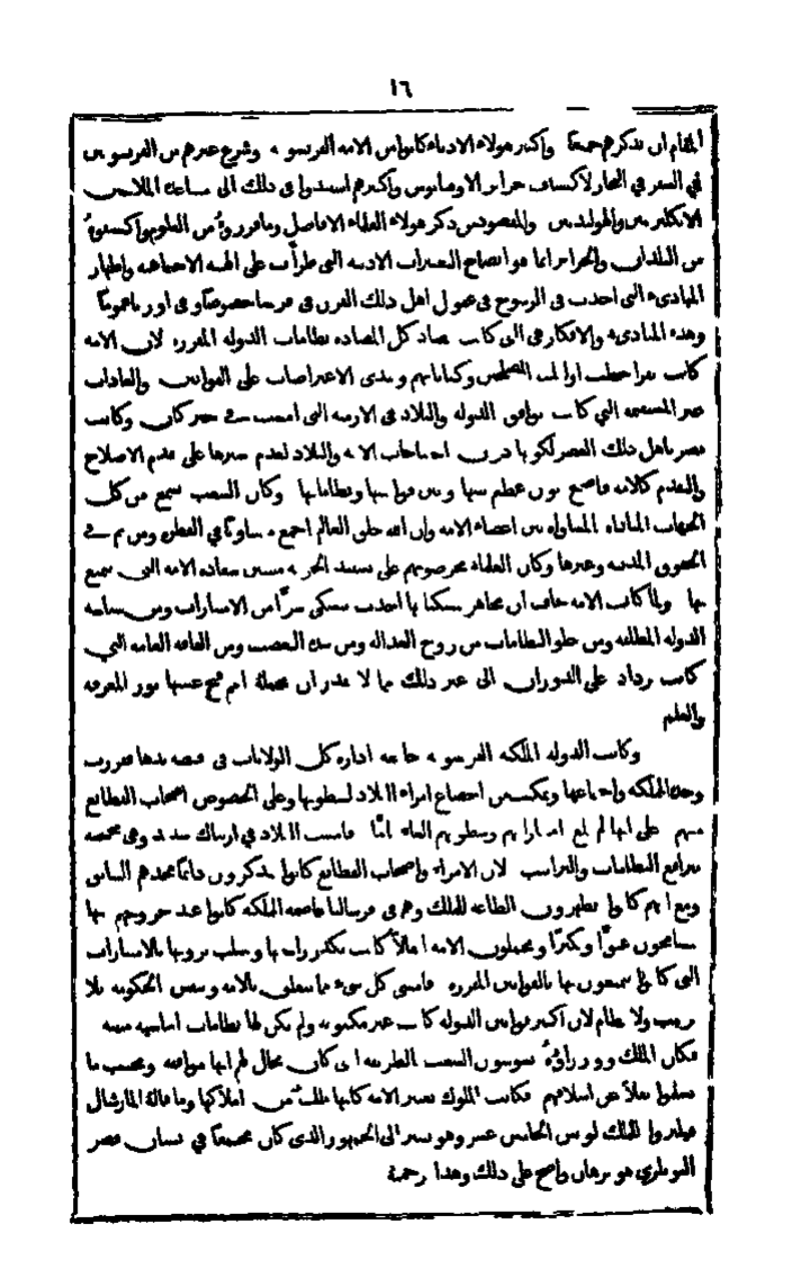 ١٦
المقام ان نذكرهم جميعًا واكثر هولاء الادباء كانوا من الامه الفرنسويه وشرع غيرهم من الفرنسويين
في السفر في البحار لاكتشاف جزاير الاوقيانوس واكثرهم استندوا في ذلك الى مساعدة الملاحين
الانكليزيين والهولنديين والمقصود من ذكر هولاء العلماء الافاضل وما قرروهُ من العلوم واكتشفوهُ
من البلدان والجزاير انما هو ايضاح التغييرات الادبيه التي طرأت على الهيه الاجتماعيه واظهار
المبادىء التي اخذت في الرسوخ في عقول اهل ذلك القرن في فرنسا خصوصًا وفي اوربا عمومًا
وهذه المبادىء والافكار هي التي كانت تضاد كل المضاده نظامات الدوله المقرره لان الامه
كانت تقرا خطب اوليك وكتاباتهم وتبدى الاعتراضات على القوانين والعادات
غير المستقيمه التي كانت توافق الدوله والبلاد في الازمنه التي امست في خبر كان وكانت
تضر باهل ذلك العصر لكونها دون احتياجات الامه والبلاد لعدم سيرها على قدم الاصلاح
والتقدم كالامه فاصبح بون عظيم بينها وبين قوانينها ونظاماتها وكان الشعب يسمع من كل
الجهات المناداه بالمساواه بين اعضاء الامه وان الله خلق العالم اجمع متساويًا في الفطره ومن ثم في
الحقوق المدنيه وغيرها وكان العلماء يحرضونهم على تمهيد الحريه سعاده الامه التي تتمتع
بها ولما كانت الامه تخاف ان تجاهر بشكواها اخذت تتشكى سرًّا من الامتيازات ومن سياسه
الدوله المطلقه ومن خلو النظامات من روح العداله ومن شده التعصب ومن الفاقه العامه التي
كانت تزداد على التوران الى غير ذلك مما لا يقدر ان يتحملهُ امم فتح عينيها نور المعرفه
والعلم
وكانت الدوله الملكيه الفرنسويه جامعه اداره كل الولايات في قبضه يدها فقررت
وحده المملكه واجتماعها وتمكنت من اخضاع امراء البلاد لسطوتها وعلى الخصوص اصحاب القطايع
منهم على انها لم تلغِ امتيازاتهم وسطوتهم الغاءً تامًّا فامست البلاد في ارتباك شديد وهي
النظامات والتراتيب لان الامراء واصحاب القطايع كانوا يذكرون دائمًا مجدهم السابق
ومع انهم كانوا يظهرون الطاعه للملك وهم في فرساليا عاصمه المملكه كانوا عند خروجهم منها
يتشامخون عتوًّا وكبرًا ويحملون الامه اثقالاً كانت تكدر راحتها وتسلب ثروتها بالامتيازات
التي كانوا يتمتعون بها بالقوانين المقرره فامسى كل شيء مما يتعلق بالامه وبنفس الحكومه بلا
ترتيب ولا نظام لان اكثر قوانين الدوله كانت غير مكتوبه ولم يكن لها نظامات اساسيه متينه
فكان الملك ووزراؤهُ يسوسون الشعب بالطريقه التي كان يخال لهم انها موافقه وبحسب ما
تسلموا نقلاً عن اسلافهم فكانت الملوك تعتبر الامه كانها ملكٌ من املاكها وما قالهُ المارشال
فيلروا للملك لويس الخامس عشر وهو يشير الى الجمهور الذي كان مجتمعًا في بستان قصر
التويلري هو برهان واضح على ذلك وهذا ترجمتهُ